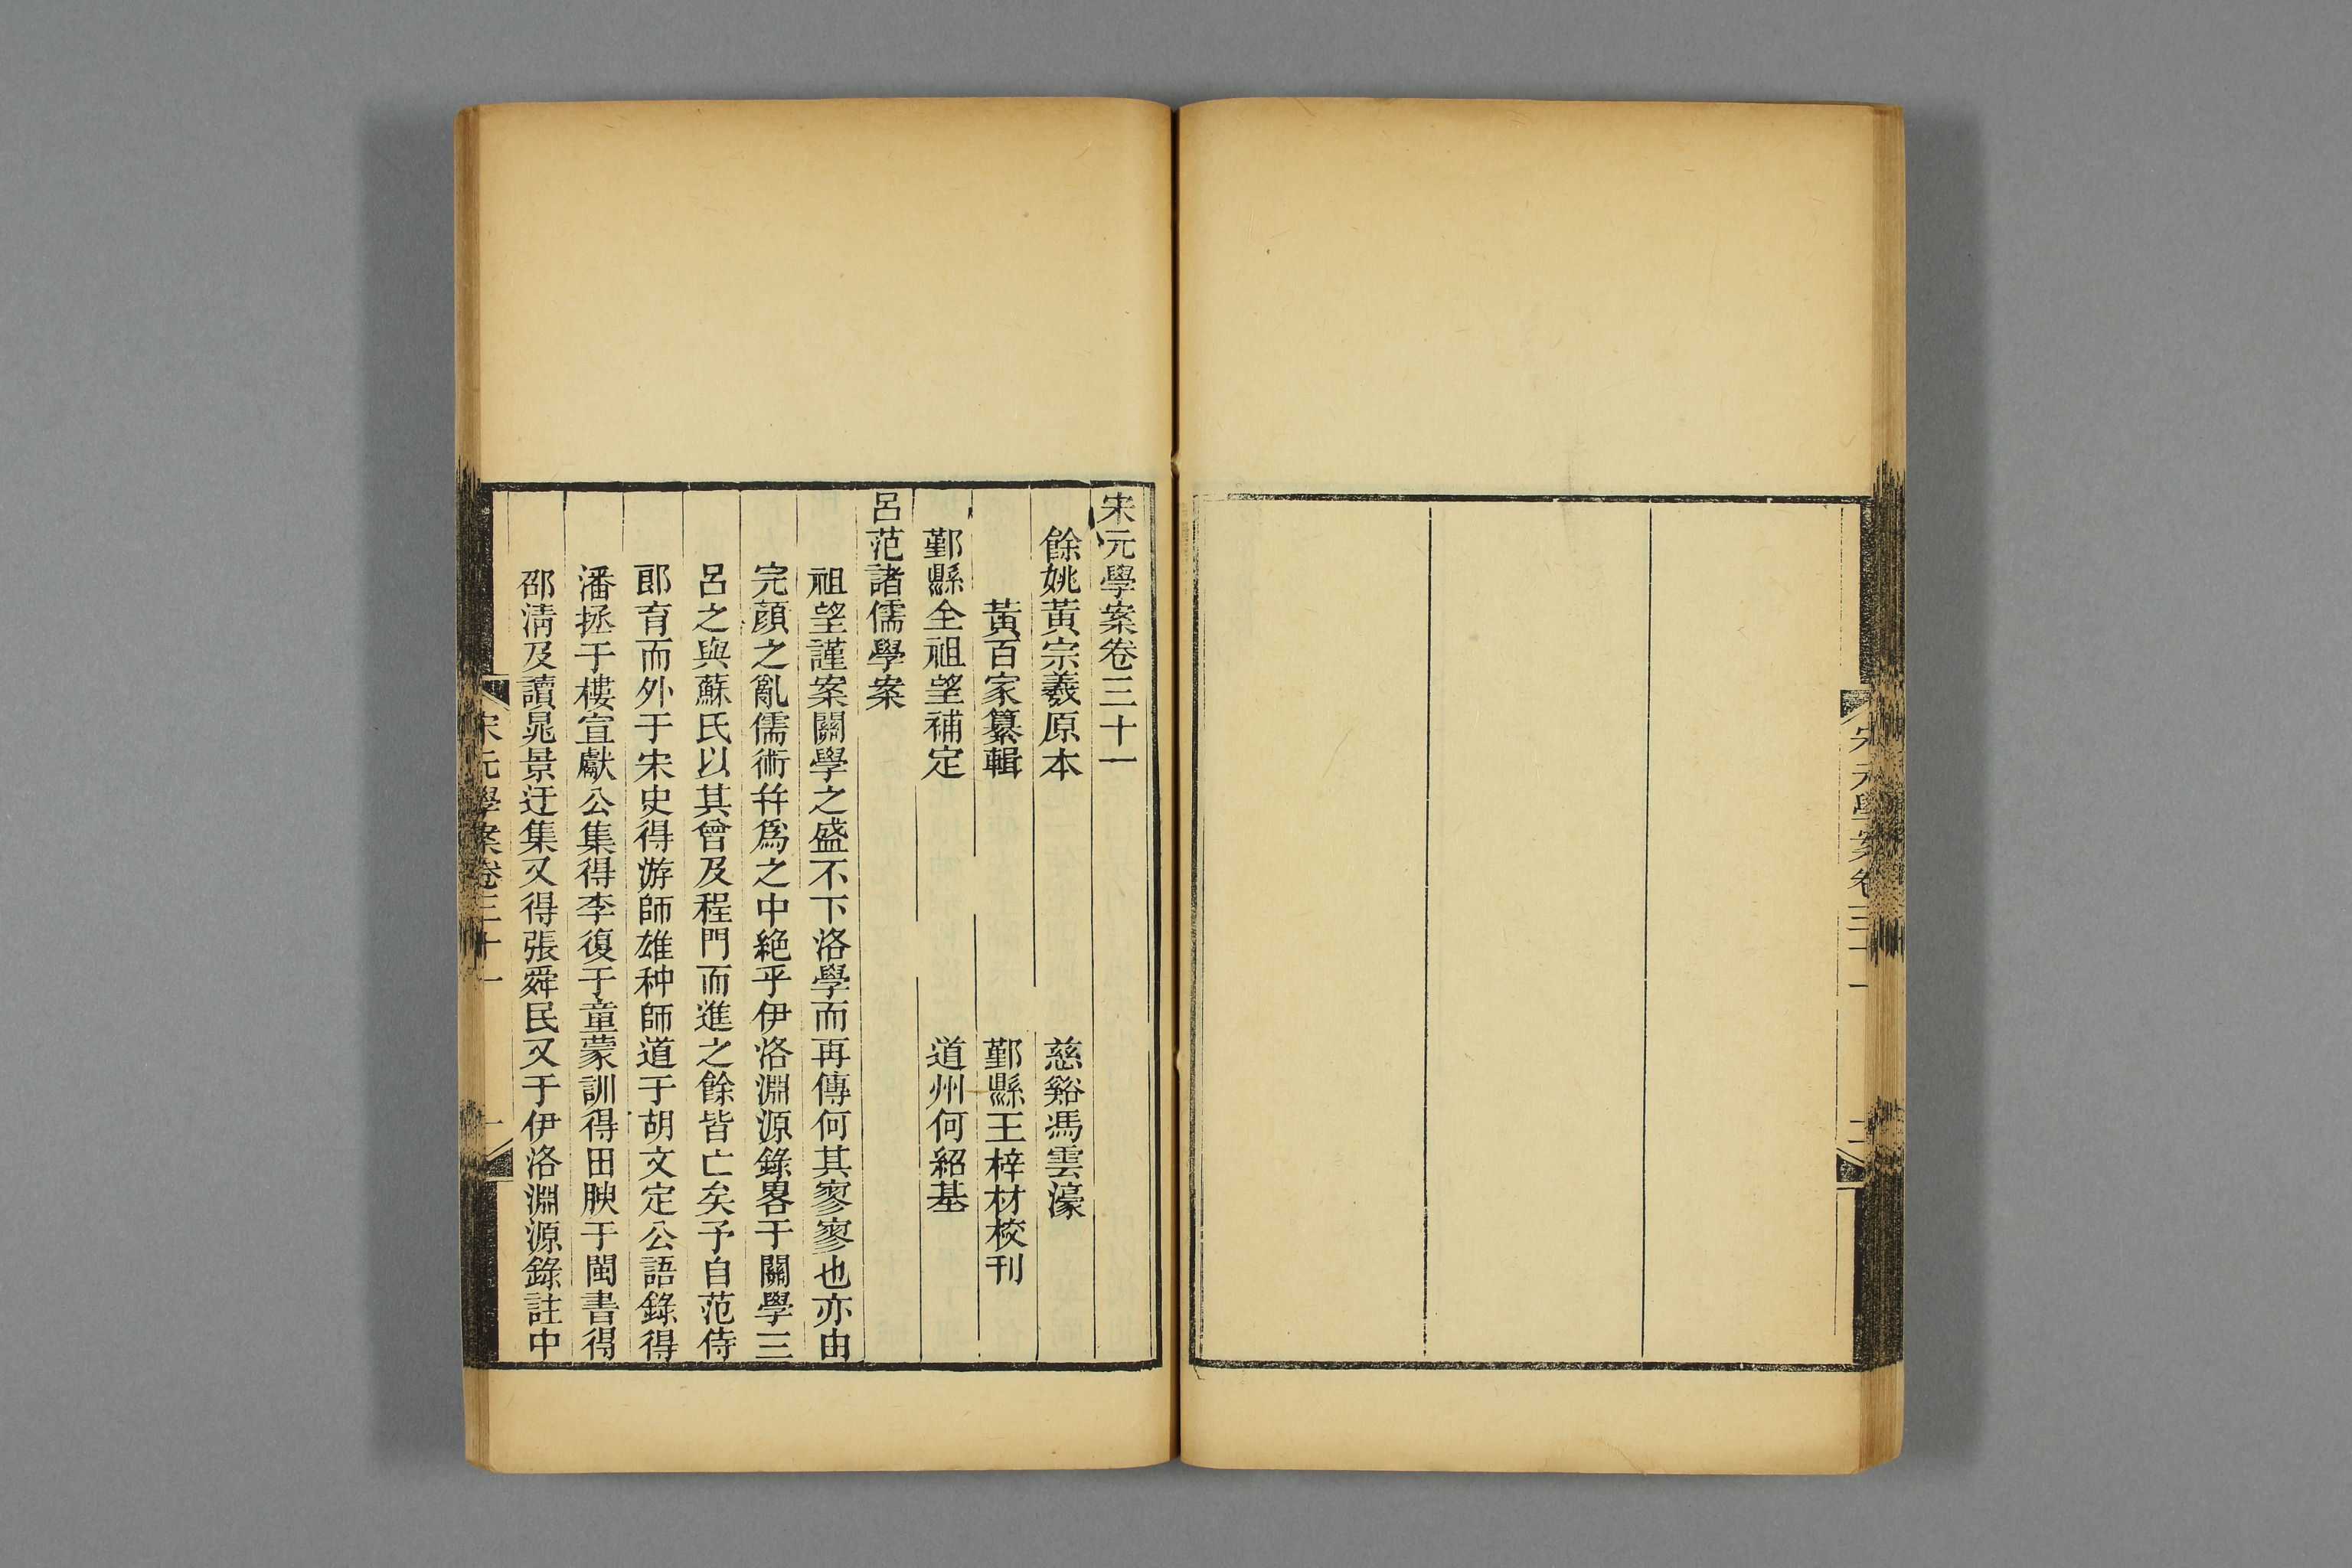 宋元學案卷三十一
二
宋元學案卷三十一
餘姚黃宗羲原本 慈谿馮雲濠
黃百家纂輯 鄞縣王梓材校刊
鄞縣全祖望補定 道州何紹基
呂范諸儒學案
祖望謹案關學之盛不下洛學而再傳何其寥寥也亦由
完顏之亂儒術幷爲之中絶乎伊洛淵源錄畧于關學三
呂之與蘇氏以其曾及程門而進之餘皆亡矣予自范侍
郎育而外于宋史得游師雄种師道于胡文定公語錄得
潘拯于樓宣獻公集得李復于童蒙訓得田腴于閩書得
邵清及讀晁景迂集又得張舜民又于伊洛淵源錄註中
宋元學案卷三十一
一